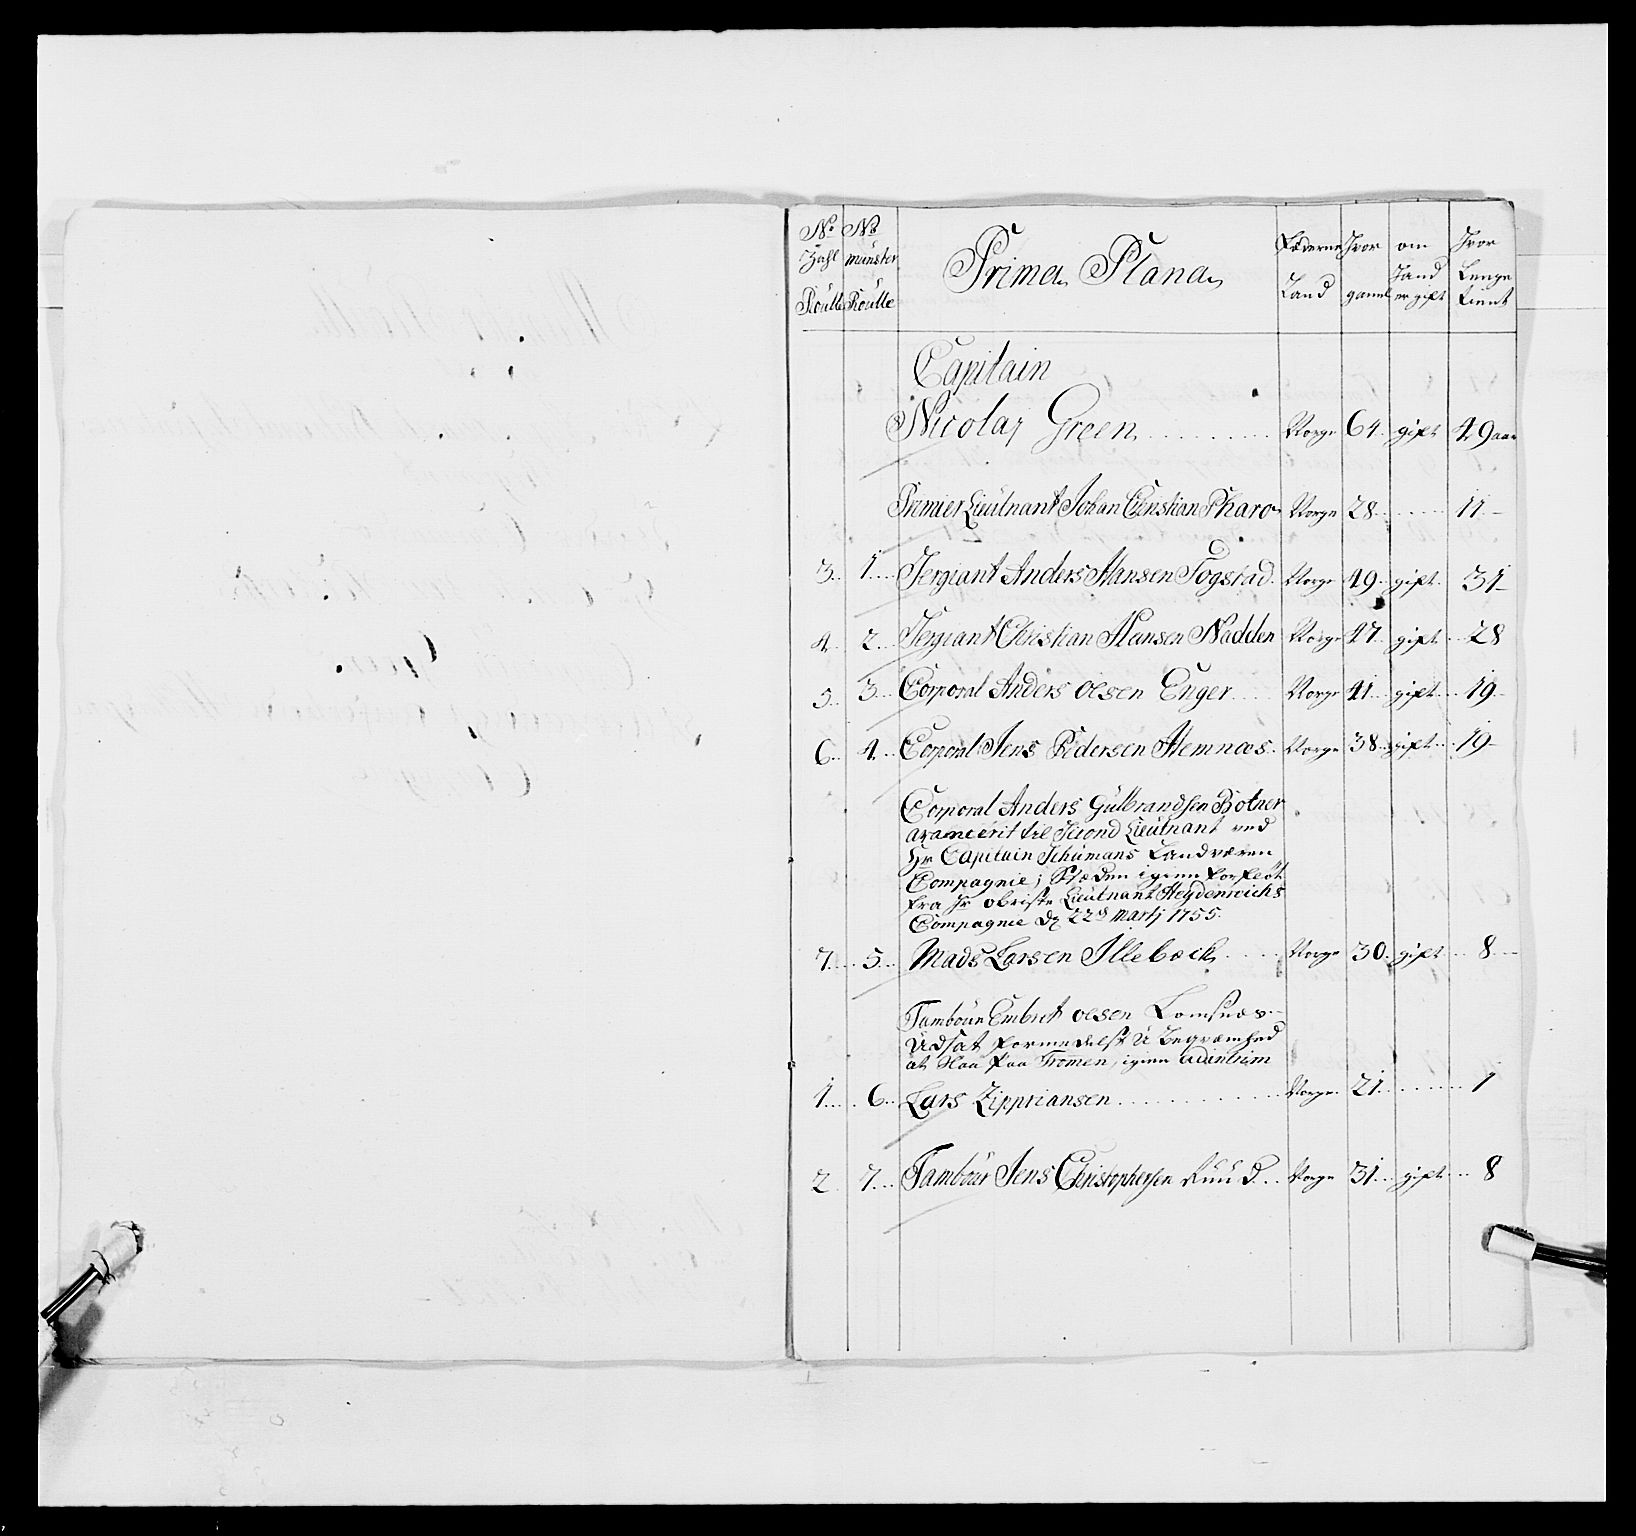 No No Fæderne Hvor om Hvor
Zahl Munster Prima Plana Land gaml Hand er gift Lenge tient
Roulle Roulle
Capitain
Nicolaj Green Norge 64 gift 49 aar
Premier Lieutnant Johan Christian Pharo Norge 28 11
3 1 Sergiant Anders Hansen Togstad Norge 49 gift 31
4 2 Sergiant Christian Hansen Nadden Norge 47 gift 28
5 3 Corporal Anders Olsen Enger Norge 41 gift 19
6 4 Corporal Jens Pedersen Hemnæs Norge 38 gift 19
Corporal Anders Gulbrandsen Botner
avancerit til Second Lieutnant ved
Hr Capitain Schumans Landværn
Compagnie; Stæden igien
fra Hr Obriste Lieutnant Heydenreichs
Compagnie d 22d Martj 1755.
7 5 Mads Larsen Illebæck Norge 30 gift 8
Tambour Embret Olsen Lomsnæs
Udsat formedelst U Beqvæmhed
at Slaa paa Tromen, igien
1 6 Lars Zippriansen Norge 21 1
2 7 Tambour Jens Christophersen Ruud Norge 31 gift 8